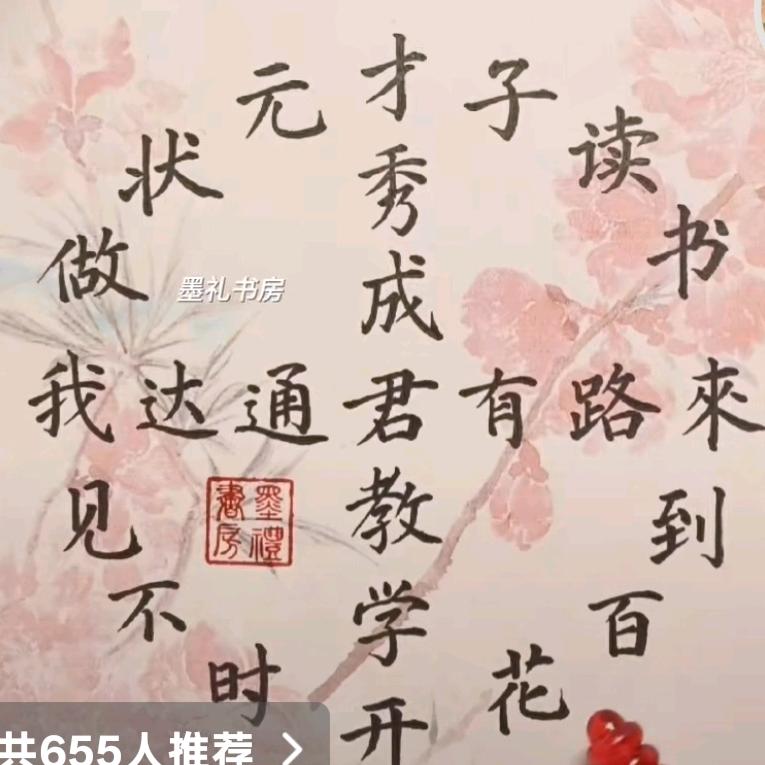 元 才 子
状 秀 读
做 成 书
墨礼书房
我 达 通 君 有 路 來
见 教 到
墨禮
書房
不 学 百
时 花
开
共655人推荐